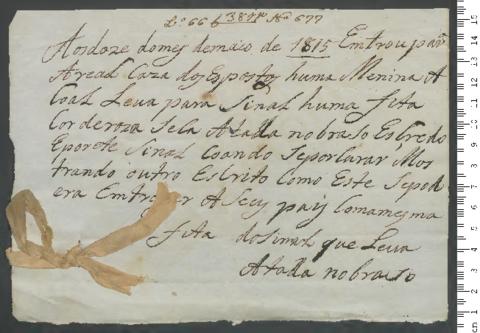 Lº 66 f 38 Nº 677
Aos doze do mes de maio de 1815 Entrou para
A real Caza dos Expostos huma Menina A
Coal Leva para Sinal huma fita
Cor de roza Sela Atalla no braso Escredo
E por Este Sinal Coando Se porCurar Mos
trando outro Escrito Como Este Se pod
era Entregar A Seus pais Coma mesma
fita do Sinal que Leva
Atalla no braso